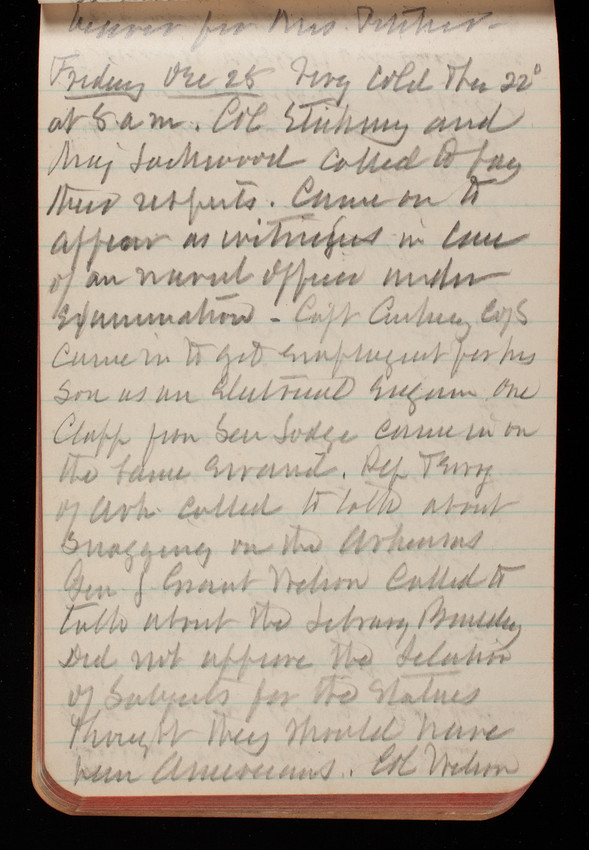 for Mrs.
Friday Dec 28 Very cold Ther 22°
at 8 a m. Col and
Maj Lockwood called to pay
their respects. Came on to
appear as witnesses in case
of an naval officer under
Examination - Capt
came in to get employment for his
son as an Electrical Engineer One
Clapp from Sen Lodge came in on
the same errand. Rep Terry
of Ark. called to talk about
Snagging on the Arkansas
Gen J Grant Wilson called to
talk about the Library Building
Did not approve the Selection
of Subjects for the Statues
thought they should have
been Americans. Col Wilson